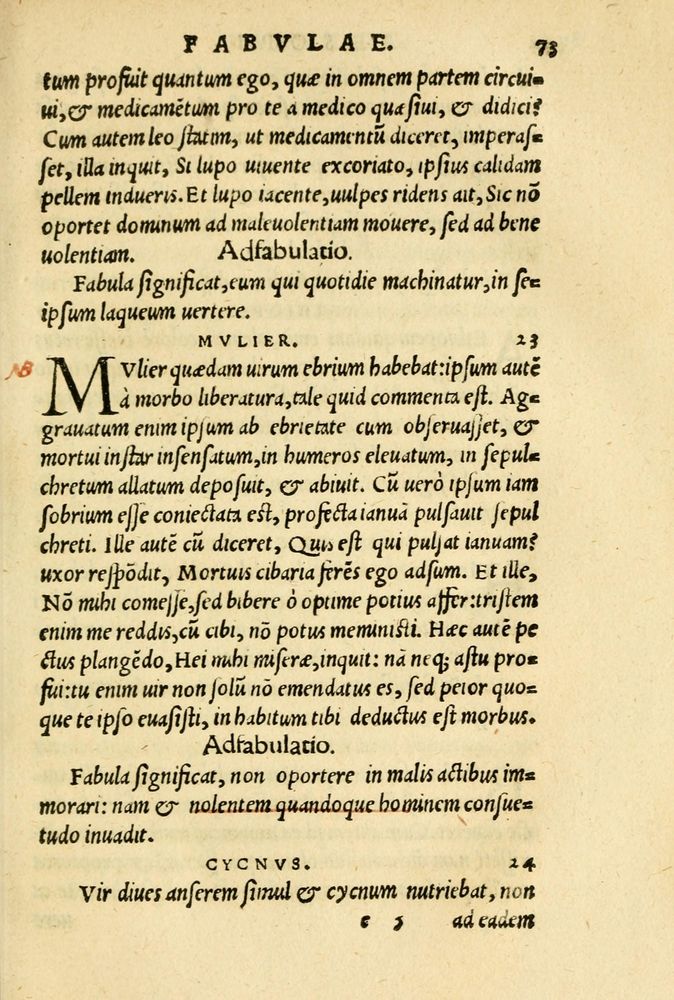 FABVLAE. 73
tum profuit quantum ego, quæ in omnem partem circui-
ui, & medicamẽtum pro te a medico quæsiui, & didici?
Cum autem leo statim, ut medicamentũ diceret, imperas-
set, illa inquit, Si lupo uiuente excoriato, ipsius calidam
pellem indueris. Et lupo iacente, uulpes ridens ait, Sic nõ
oportet dominum ad maleuolentiam mouere, sed ad bene
uolentiam. Adfabulatio.
Fabula significat, eum qui quotidie machinatur, in se-
ipsum laqueum uertere.
MVLIER. 23
NB MVlier quædam uirum ebrium habebat: ipsum autẽ
à morbo liberatura, tale quid commenta est. Ag-
grauatum enim ipsum ab ebrietate cum obseruasset, &
mortui instar insensatum, in humeros eleuatum, in sepul-
chretum allatum deposuit, & abiuit. Cũ uerò ipsum iam
sobrium esse coniectata est, profecta ianuã pulsauit sepul
chreti. Ille autẽ cũ diceret, Quis est qui pulsat ianuam?
uxor respõdit, Mortuis cibaria ferẽs ego adsum. Et ille,
Nõ mihi comesse, sed bibere ò optime potius affer: tristem
enim me reddis, cũ cibi, nõ potus meministi. Hæc autẽ pe
ctus plangẽdo, Hei mihi miseræ, inquit: nã neq; astu pro-
fui: tu enim uir non solũ nõ emendatus es, sed peior quo-
que te ipso euasisti, in habitum tibi deductus est morbus.
Adfabulatio.
Fabula significat, non oportere in malis actibus im-
morari: nam & nolentem quandoque hominem consue-
tudo inuadit.
CYCNVS. 24
Vir diues anserem simul & cycnum nutriebat, non
e 3 ad eadem